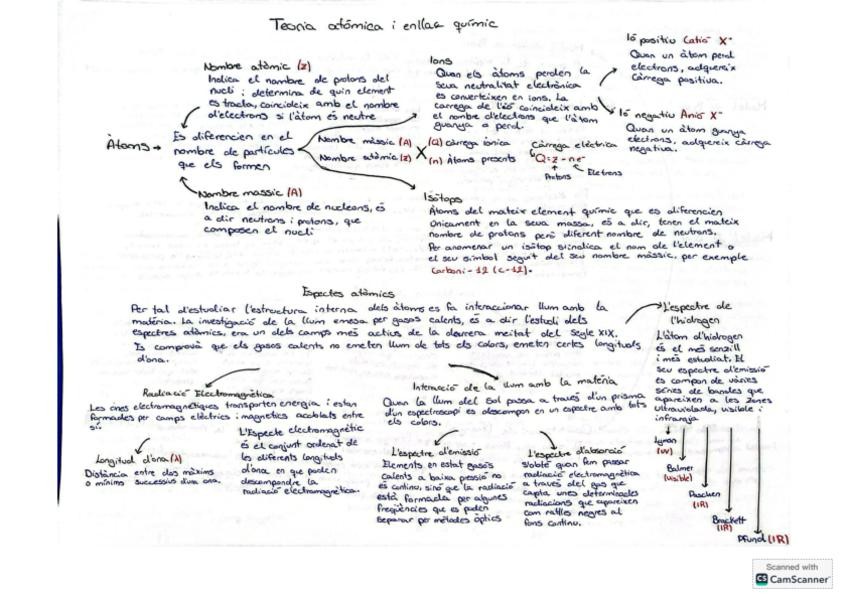 Teoria atómica i enllaç químic
Nombre atòmic (z)
Indica el nombre de protons del
nucli i determina de quin element
es tracta, coincideix amb el nombre
d'electrons si l'àtom és neutre
Àtoms →
Es diferencien en el
nombre de partícules
que els formen
Nombre massic (A)
Indica el nombre de nucleons, és
a dir neutrons i protons, que
composen el nucli
Nombre màssic (A)
Nombre atòmic (z)
X
(Q) Càrrega iònica
(n) Àtoms presents
Ions
Quan els àtoms perden la
seua neutralitat electrònica
es converteixen en ions. La
carrega de l'ió coincideix amb
el nombre d'electrons que l'àtom
guanya o perd.
Càrrega elèctrica
Q=z-ne-
Protons
Eletrons
Ió positiu Catió X+
Quan un àtom perd
electrons, adquereix
càrrega positiva.
Ió negatiu Anió X-
Quan un àtom guanya
electrons, adquereix càrrega
negativa.
Isòtops
Àtoms del mateix element químic que es diferencien
únicament en la seua massa, és a dir, tenen el mateix
nombre de protons però diferent nombre de neutrons.
Per anomenar un isòtop s'indica el nom de l'element o
el seu símbol seguit del seu nombre màssic, per exemple
Carboni-12 (C-12).
Espectes atòmics
Per tal d'estudiar l'estructura interna dels àtoms es fa interaccionar llum amb la
matèria. La investigació de la llum emesa per gasos calents, és a dir l'estudi dels
espectres atòmics, era un dels camps més actius de la darrera meitat del segle XIX.
Es comprovà que els gasos calents no emeten llum de tots els colors, emeten certes longituds
d'ona.
L'espectre de
l'hidrogen
L'àtom d'hidrogen
és el més senzill
i més estudiat. El
seu espectre d'emissió
es compon de vàries
sèries de bandes que
apareixen a les zones
ultraviolada, visible i
infraroja
Lyman
(UV)
Balmer
(visible)
Paschen
(IR)
Brackett
(IR)
Pfund (IR)
Radiació Electromagnètica
Les ones electromagnètiques transporten energia i estan
formades per camps elèctrics i magnètics acoblats entre
sí.
Longitud d'ona (λ)
Distància entre dos màxims
o mínims successius d'una ona.
L'Especte electromagnètic
és el conjunt ordenat de
les diferents longituds
d'ona en què poden
descompondre la
radiació electromagnètica.
Interacció de la llum amb la matèria
Quan la llum del Sol passa a través d'un prisma
d'un espectroscopi es descompon en un espectre amb tots
els colors.
L'espectre d'emissió
Elements en estat gasós
calents a baixa pressió no
és continu, sinó que la radiació
està formada per algunes
freqüències que es poden
separar per mètodes òptics
L'espectre d'absorció
S'obté quan fem passar
radiació electromagnètica
a través del gas que
capta unes determinades
radiacions que apareixen
com ratlles negres al
fons continu.
Scanned with
CS CamScanner